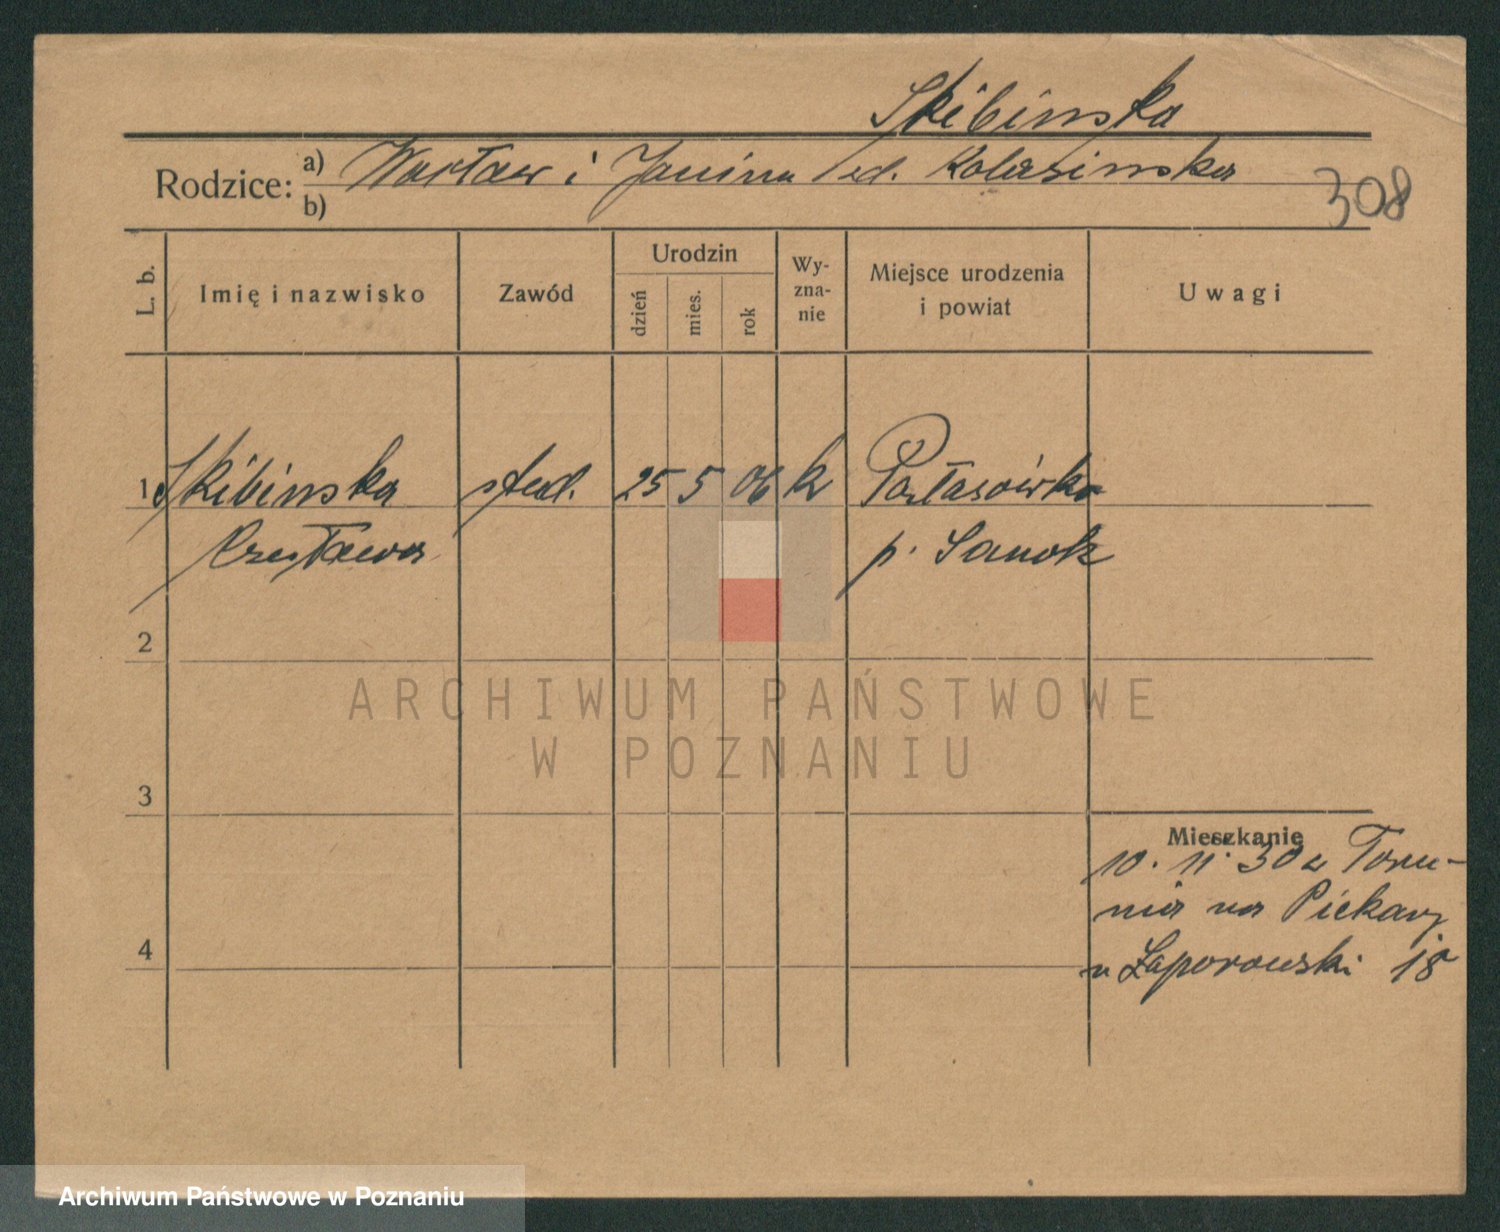 Skibinska
Rodzice: a) Wacław i Janina
b)
308
L. b.
Imię i nazwisko
Zawód
Urodzin
dzień
mies.
rok
Wy-
zna-
nie
Miejsce urodzenia
i powiat
Uwagi
1 Skibinska stud. 25 5 06 k
Czesława p. Sanok
2
ARCHIWUM PAŃSTWOWE
W POZNANIU
3
Mieszkanie
10. 11. 30 z Toru-
nia na Piekary
u Zaporowski 18
4
Archiwum Państwowe w Poznaniu